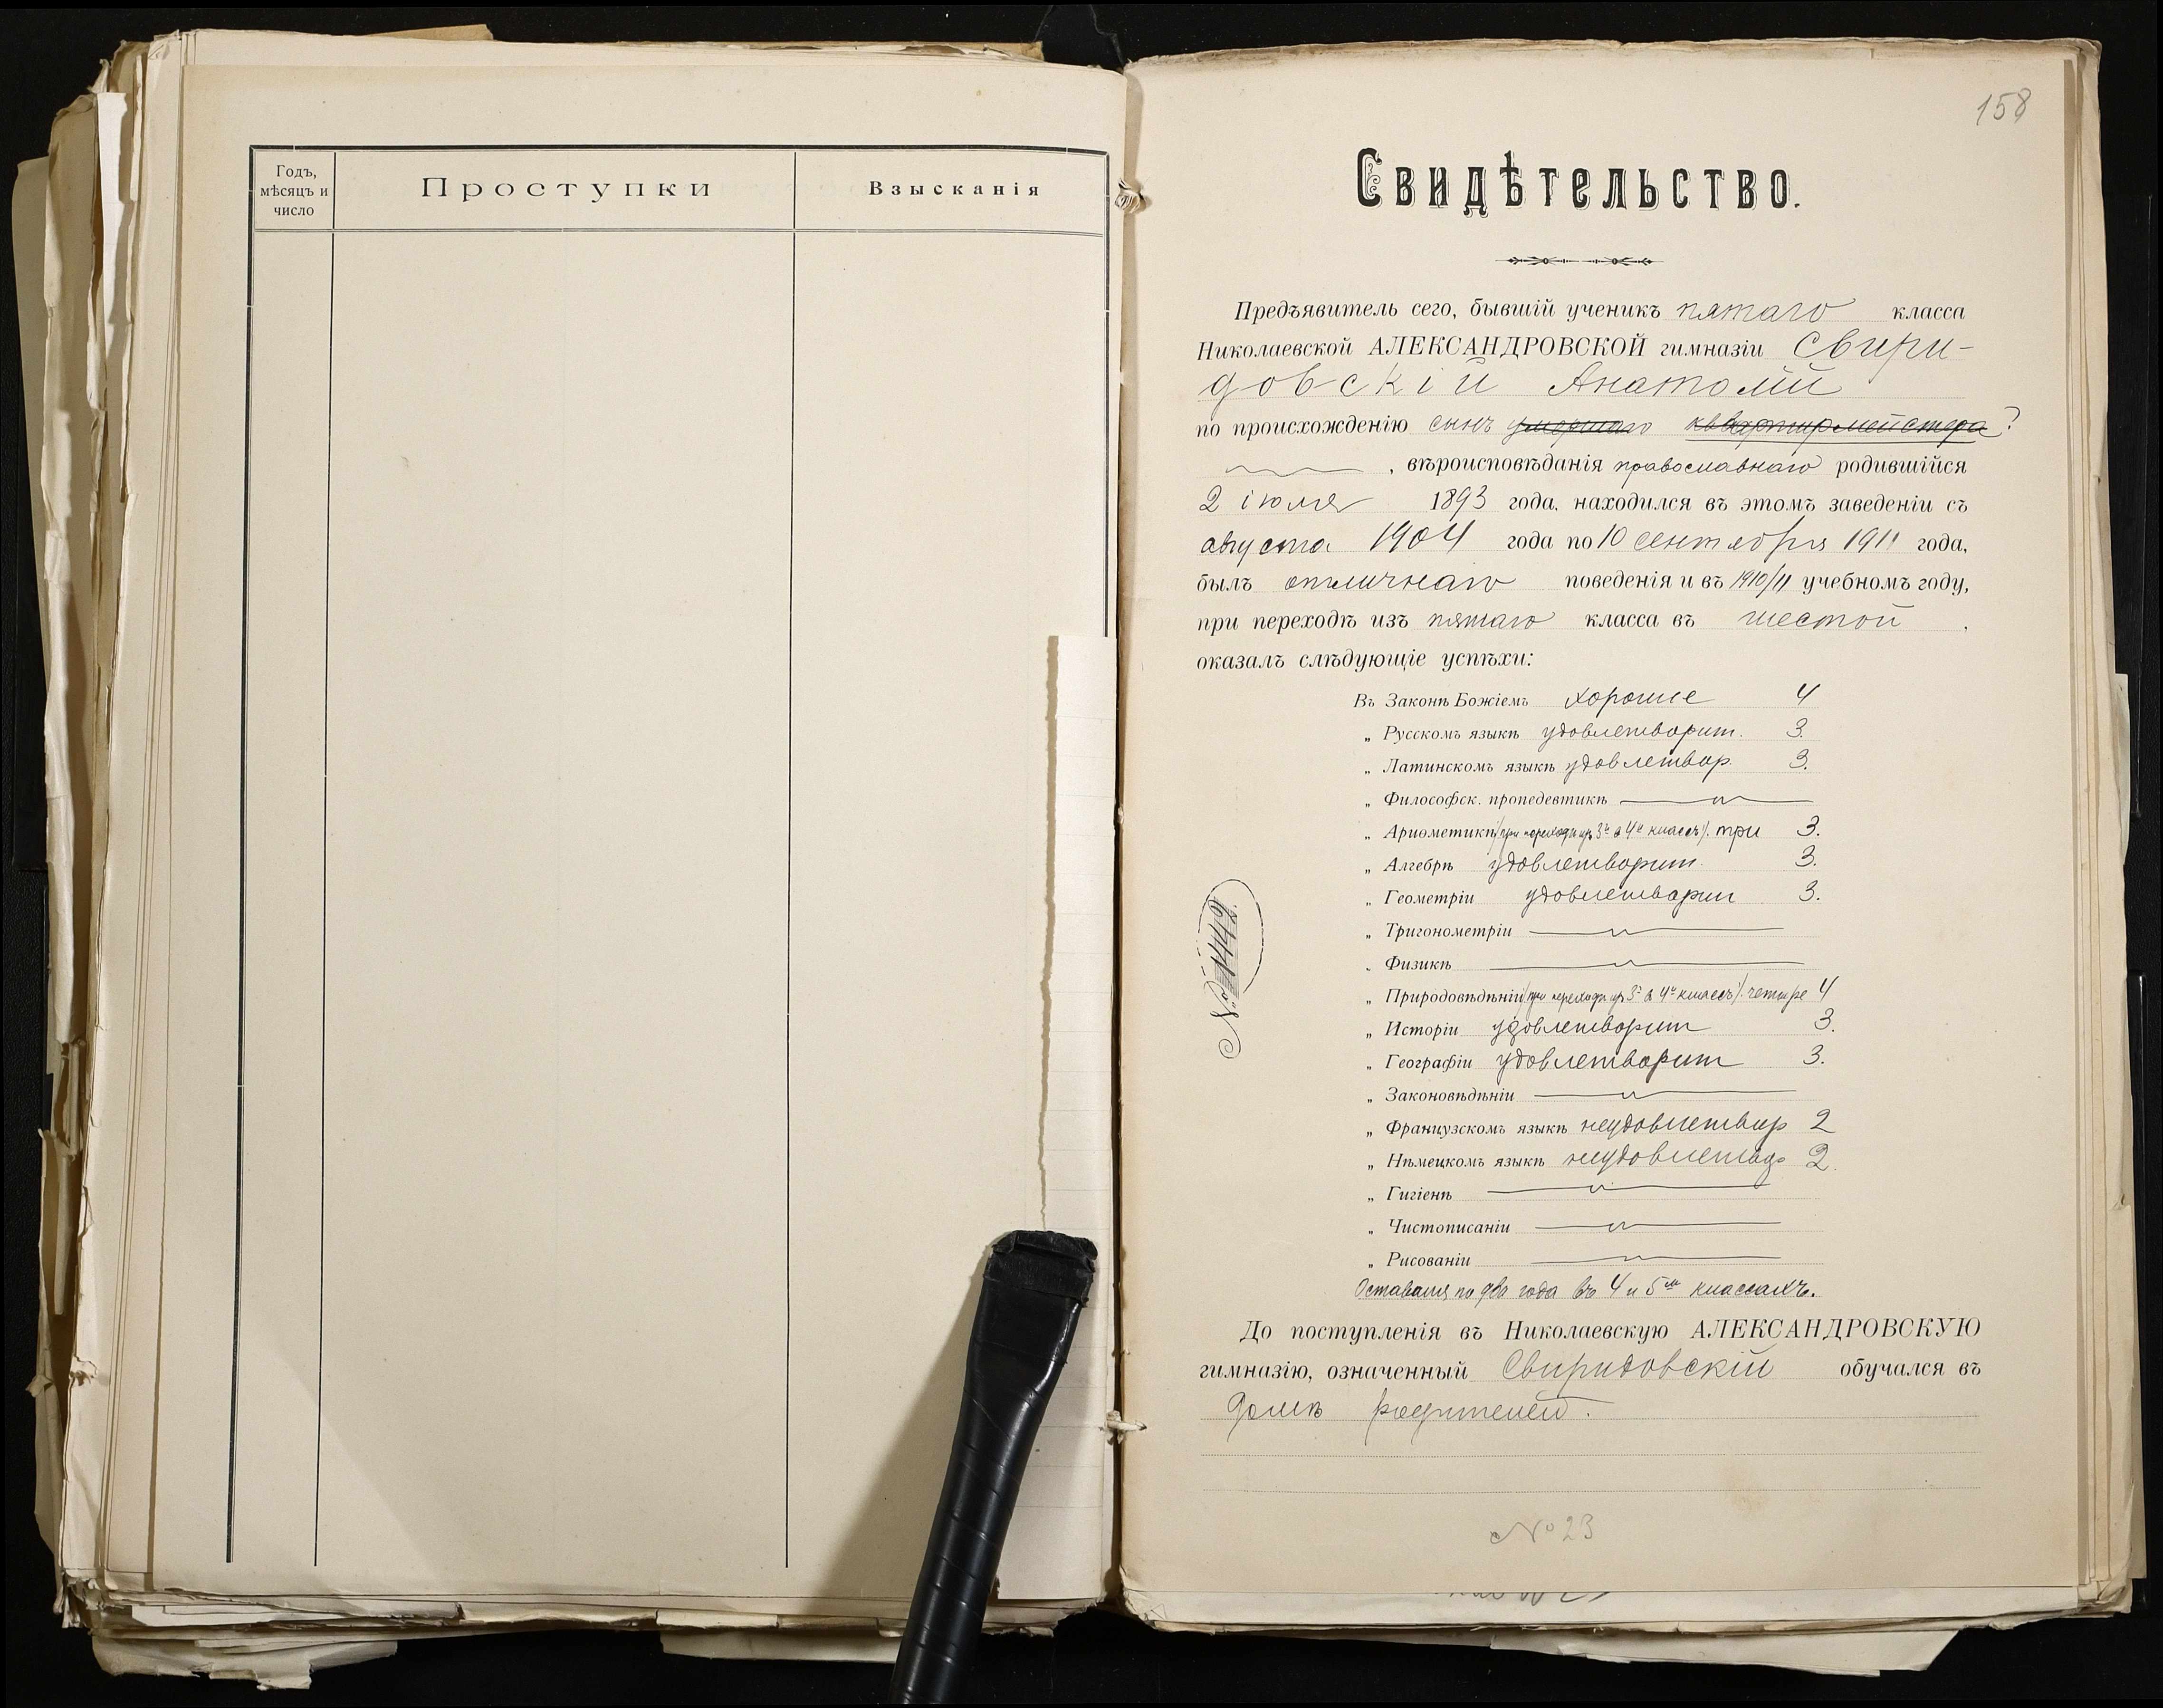 Годъ,
мѣсяцъ и
число
Проступки
Взысканія
158
Свидѣтельство.
Предъявитель сего, бывшій ученикъ пятаго класса
Николаевской АЛЕКСАНДРОВСКОЙ гимназіи Свири-
довскій Анатолій
по происхожденію сынъ умершаго квартирмейстера?
, вѣроисповѣданія православнаго родившійся
2 іюля 1893 года, находился въ этомъ заведеніи съ
августа 1904 года по 10 сентября 1911 года,
былъ отличнаго поведенія и въ 1910/11 учебномъ году,
при переходѣ изъ пятаго класса въ шестой ,
оказалъ слѣдующіе успѣхи:
Въ Законѣ Божіемъ хорошіе 4
„ Русскомъ языкѣ удовлетворит. 3.
„ Латинскомъ языкѣ удовлетвор. 3.
„ Философск. пропедевтикѣ
„ Ариѳметикѣ (при переходѣ изъ 3го въ 4й классъ). три 3.
„ Алгебрѣ удовлетворит. 3.
„ Геометріи удовлетворит 3.
„ Тригонометріи
„ Физикѣ
„ Природовѣдѣніи (при переходѣ изъ 3го въ 4й классъ). четыре 4
„ Исторіи удовлетворит 3.
„ Географіи удовлетворит 3.
„ Законовѣдѣніи
„ Французскомъ языкѣ неудовлетвор 2
„ Нѣмецкомъ языкѣ неудовлетвор 2.
„ Гигіенѣ
„ Чистописаніи
„ Рисованіи
Оставался по два года въ 4 и 5мъ классахъ.
№ 1442.
До поступленія въ Николаевскую АЛЕКСАНДРОВСКУЮ
гимназію, означенный Свиридовскій обучался въ
домѣ родителей.
№ 23